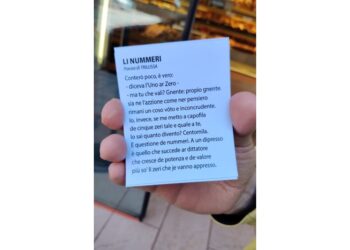 LI NUMMERI
Poesia di TRILUSSA
Conterò poco, è vero:
- diceva l'Uno ar Zero -
- ma tu che vali? Gnente: propio gnente.
sia ne l'azzione come ner pensiero
rimani un coso vôto e inconcrudente.
Io, invece, se me metto a capofila
de cinque zeri tale e quale a te,
lo sai quanto divento? Centomila.
È questione de nummeri. A un dipresso
è quello che succede ar dittatore
che cresce de potenza e de valore
più so' li zeri che je vanno appresso.